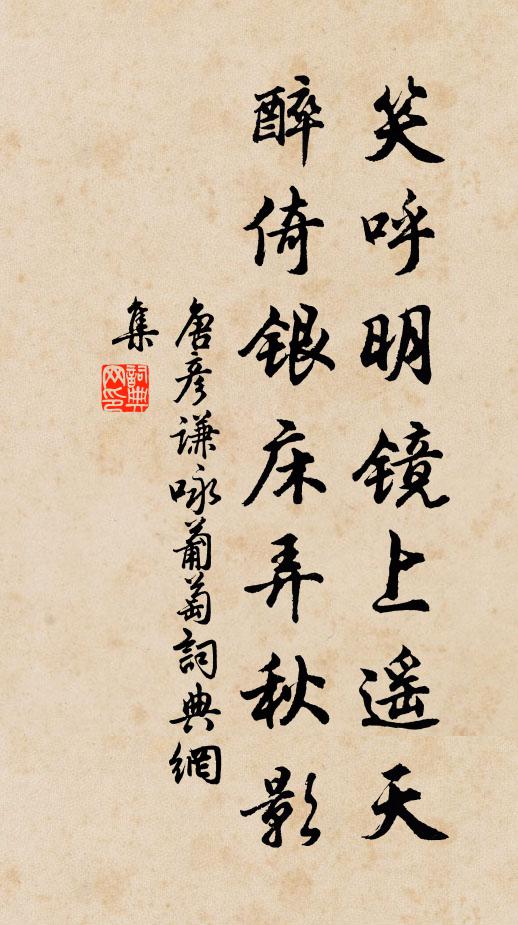 笑呼明镜上遥天
醉倚银床弄秋影
唐彦谦咏葡萄詞典網
集
詞典
网印